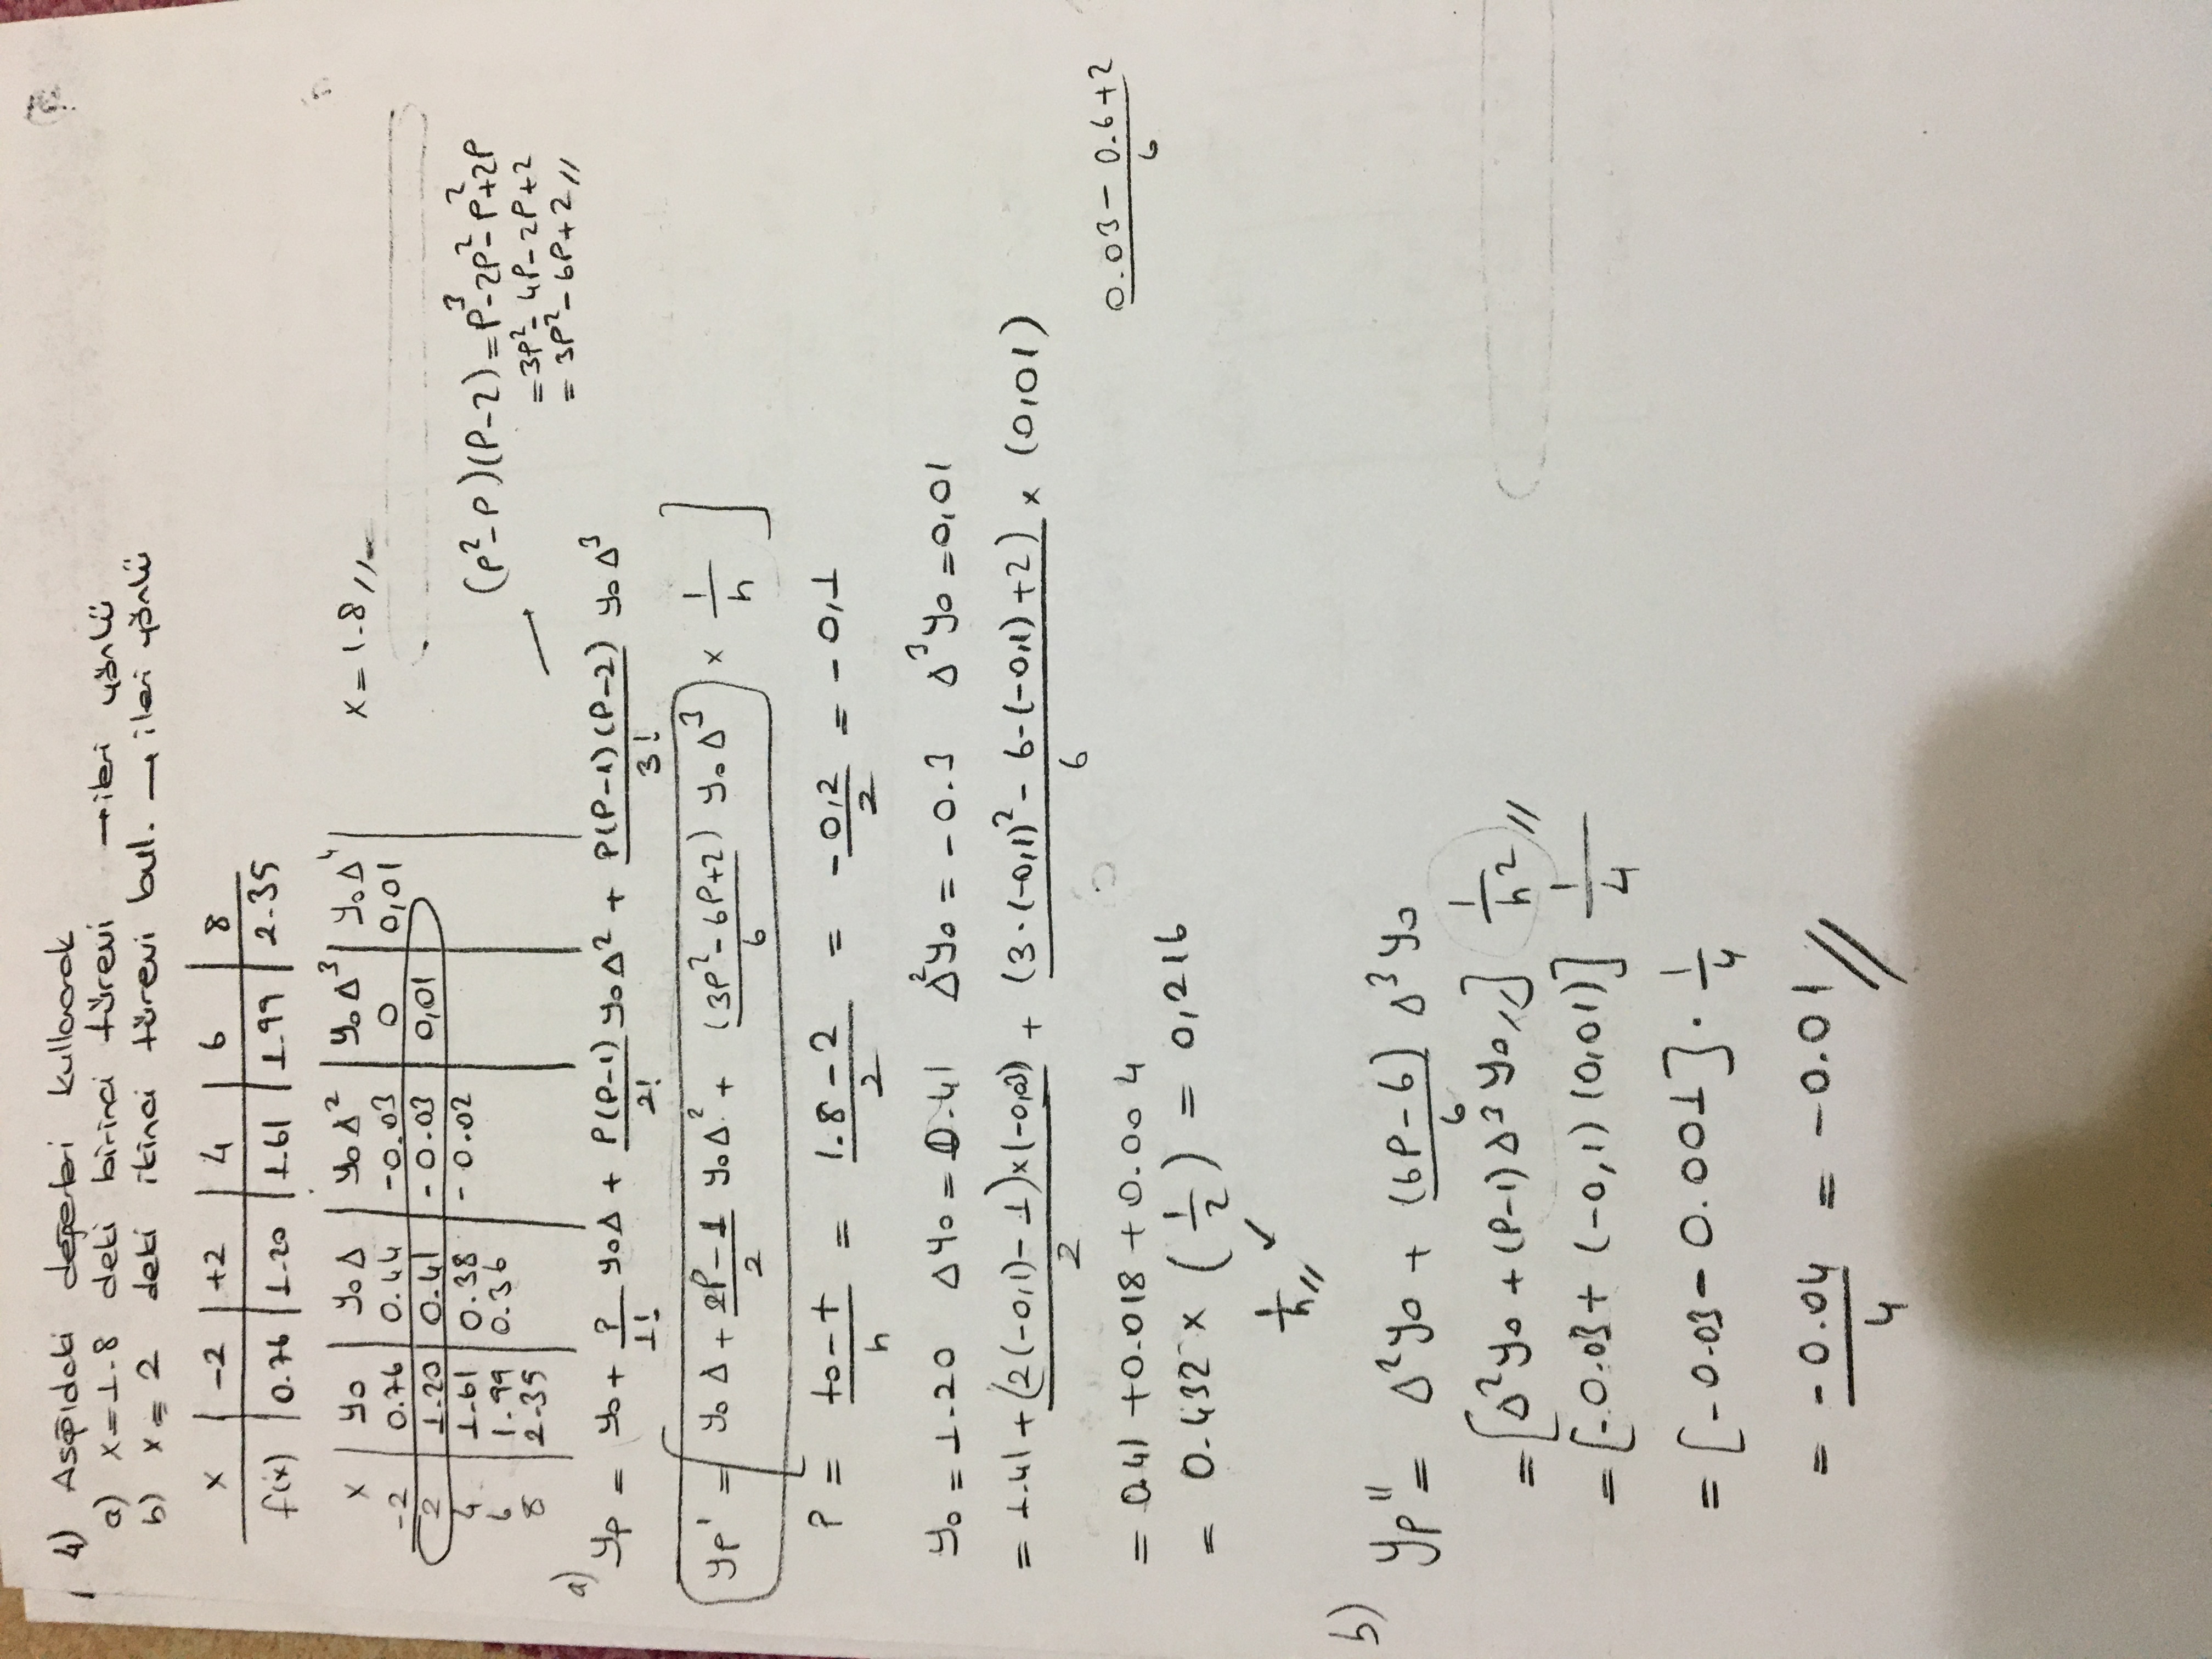 4) Aşağıdaki değerleri kullanarak
a) x=1.8 deki birinci türevi → ileri yönlü
b) x=2 deki ikinci türevi bul. → ileri yönlü
x | -2 | +2 | 4 | 6 | 8
f(x) | 0.76 | 1.20 | 1.61 | 1.99 | 2.35
x | y₀ | y₀Δ | y₀Δ² | y₀Δ³ | y₀Δ⁴
-2 | 0.76 | 0.44 | -0.03 | 0 | 0,01
2 | 1.20 | 0.41 | -0.03 | 0,01
4 | 1.61 | 0.38 | -0.02
6 | 1.99 | 0.36
8 | 2.35
x=1.8//
(p²-p)(p-2)=p³-2p²-p²+2p
=3p²-4p-2p+2
=3p²-6p+2//
a)
yp = y₀ + p/1! y₀Δ + p(p-1)/2! y₀Δ² + p(p-1)(p-2)/3! y₀Δ³
yp' = [y₀Δ + 2p-1/2 y₀Δ² + (3p²-6p+2)/6 y₀Δ³ x 1/h]
p = to-t/h = 1.8-2/2 = -0,2/2 = -0,1
y₀=1.20 Δy₀=0.41 Δ²y₀=-0.3 Δ³y₀=0,01
= 1.41 + (2(-0,1)-1)x(-0,03)/2 + (3.(-0,1)²-6-(-0,1)+2)/6 x (0,01)
0.03-0.6+2/6
= 0.41+0.018+0.004
= 0.432 x (1/2) = 0,216
1/h// ✓
b)
yp'' = Δ²y₀ + (6p-6)/6 Δ³y₀
=[Δ²y₀+(p-1)Δ³y₀//] 1/h²//
=[-0.03+(-0,1)(0,01)] 1/4
=[-0.03-0.001].1/4
= -0.04/4 = -0.01//